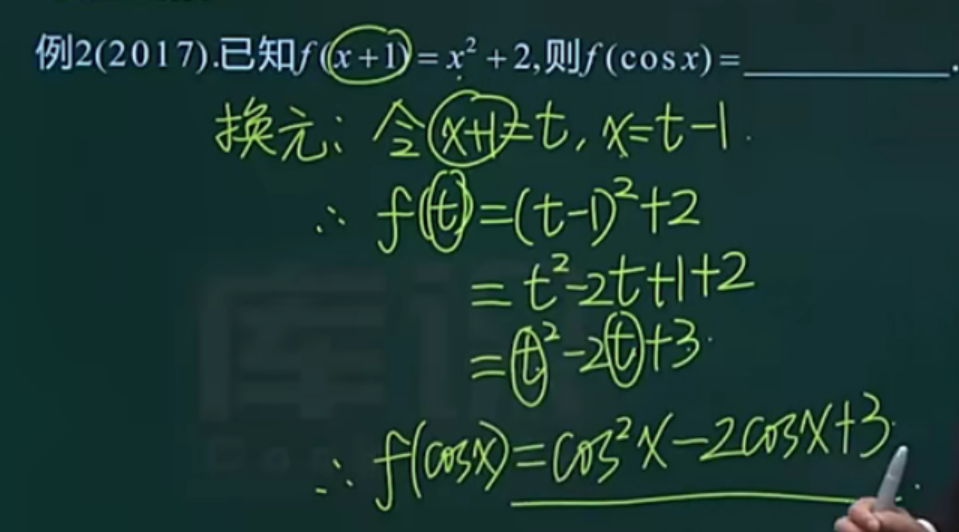 例2(2017).已知f(x+1)=x²+2,则f(cosx)=__________.
换元: 令x+1=t, x=t-1.
∴ f(t)=(t-1)²+2
=t²-2t+1+2
=t²-2t+3.
∴ f(cosx)=cos²x-2cosx+3.